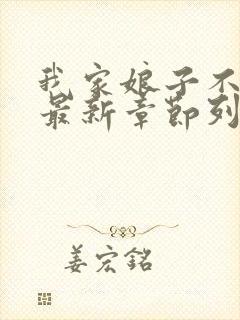 我家娘子不
最新章節列
姜宏銘